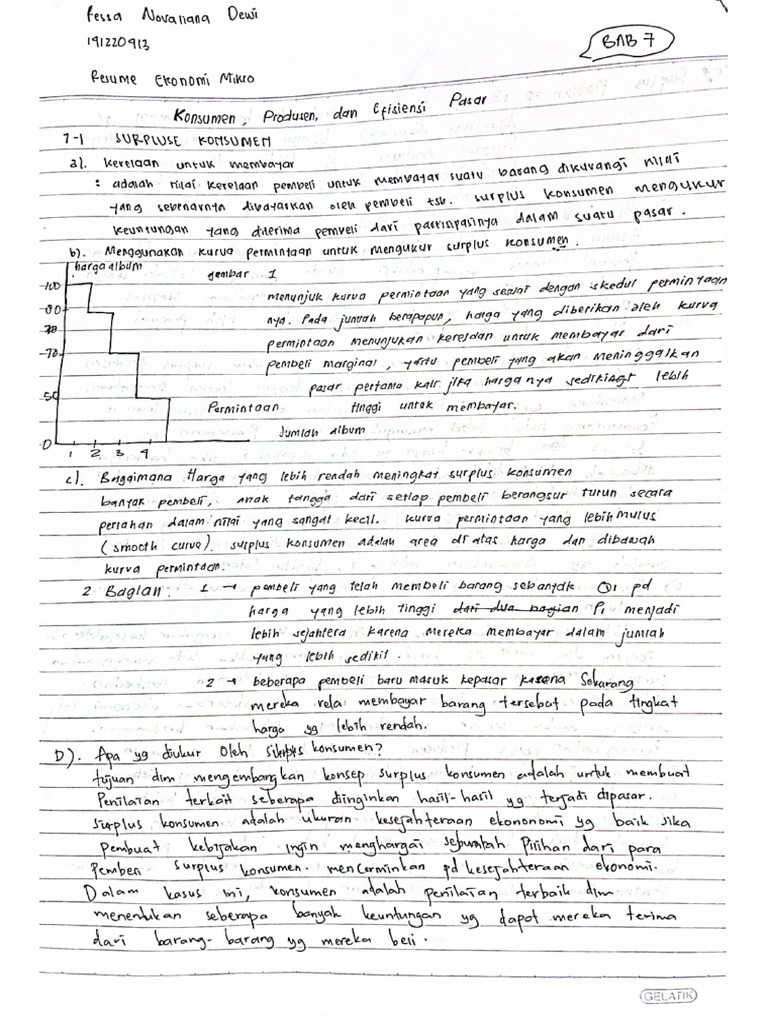 Fessa Novaliana Dewi
191220913
BAB 7
Resume Ekonomi Mikro
Konsumen, Produsen, dan Efisiensi Pasar
7-1 SURPLUSE KONSUMEN
a). Kerelaan untuk membayar
: adalah nilai kerelaan pembeli untuk membayar suatu barang dikurangi nilai
yang sebenarnya dibayarkan oleh pembeli tsb. surplus konsumen mengukur
keuntungan yang diterima pembeli dari partisipasinya dalam suatu pasar.
b). Menggunakan kurva permintaan untuk mengukur surplus konsumen.
harga album
gambar 1
100
80
70
50
0
1 2 3 4
menunjuk kurva permintaan yang sesuai dengan skedul permintaan
nya. Pada jumlah berapapun, harga yang diberikan oleh kurva
permintaan menunjukan kerelaan untuk membayar dari
pembeli marginal, yaitu pembeli yang akan meninggalkan
pasar pertama kali jika harganya sedikit lebih
Permintaan tinggi untuk membayar.
Jumlah album
c). Bagaimana Harga yang lebih rendah meningkat surplus konsumen
banyak pembeli, anak tangga dari setiap pembeli berangsur turun secara
perlahan dalam nilai yang sangat kecil. kurva permintaan yang lebih mulus
(smooth curva). surplus konsumen adalah area di atas harga dan dibawah
kurva permintaan.
2 Bagian : 1 → pembeli yang telah membeli barang sebanyak Q1 pd
harga yang lebih tinggi dari dua bagian P1 menjadi
lebih sejahtera karena mereka membayar dalam jumlah
yang lebih sedikit.
2 → beberapa pembeli baru masuk kepasar karena sekarang
mereka rela membayar barang tersebut pada tingkat
harga yg lebih rendah.
D). Apa yg diukur oleh surplus konsumen?
tujuan dlm mengembangkan konsep surplus konsumen adalah untuk membuat
Penilaian terkait seberapa diinginkan hasil-hasil yg terjadi dipasar.
surplus konsumen adalah ukuran kesejahteraan ekononomi yg baik jika
Pembuat kebijakan ingin menghargai sejumlah Pilihan dari para
Pembeli surplus konsumen. mencerminkan pd kesejahteraan ekonomi.
Dalam kasus ini, konsumen adalah penilaian terbaik dlm
menentukan seberapa banyak keuntungan yg dapat mereka terima
dari barang-barang yg mereka beli.
GELATIK